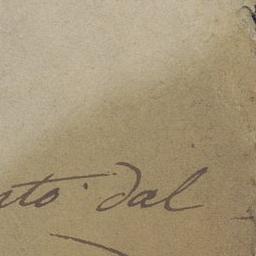 ato dal